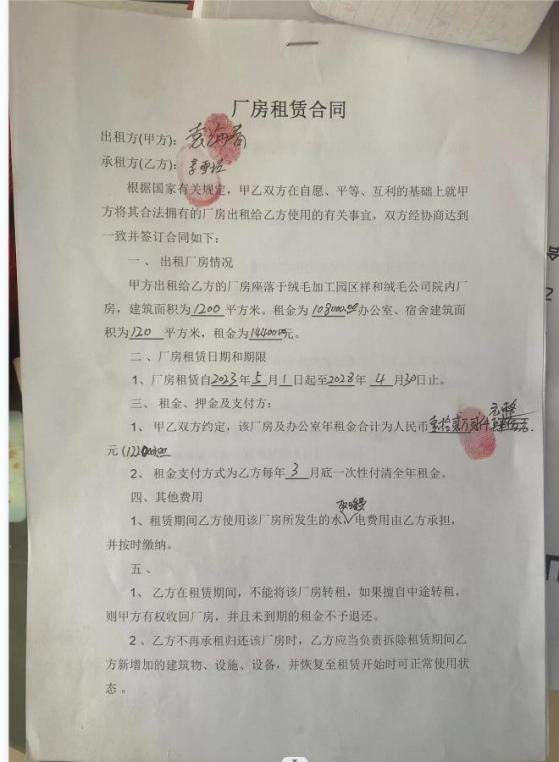 厂房租赁合同
出租方(甲方)：袁海
承租方(乙方)：李
根据国家有关规定，甲乙双方在自愿、平等、互利的基础上就甲
方将其合法拥有的厂房出租给乙方使用的有关事宜，双方经协商达到
一致并签订合同如下：
一 、 出租厂房情况
甲方出租给乙方的厂房座落于绒毛加工园区祥和绒毛公司院内厂
房，建筑面积为1200平方米。租金为108000.00办公室、宿舍建筑面
积为120 平方米，租金为14400元。
二 、厂房租赁日期和期限
1、厂房租赁自2023年5月1日起至2028年 4 月30日止。
三、 租金、押金及支付方：
元整
1、 甲乙双方约定，该厂房及办公室年租金合计为人民币壹拾贰万贰仟
元 (122000.00
2、 租金支付方式为乙方每年 3 月底一次性付清全年租金。
四、其他费用
取暖费
1、租赁期间乙方使用该厂房所发生的水、电费用由乙方承担，
并按时缴纳。
五 、
1、 乙方在租赁期间，不能将该厂房转租，如果擅自中途转租，
则甲方有权收回厂房，并且未到期的租金不予退还。
2 、乙方不再承租归还该厂房时，乙方应当负责拆除租赁期间乙
方新增加的建筑物、设施、设备，并恢复至租赁开始时可正常使用状
态 。